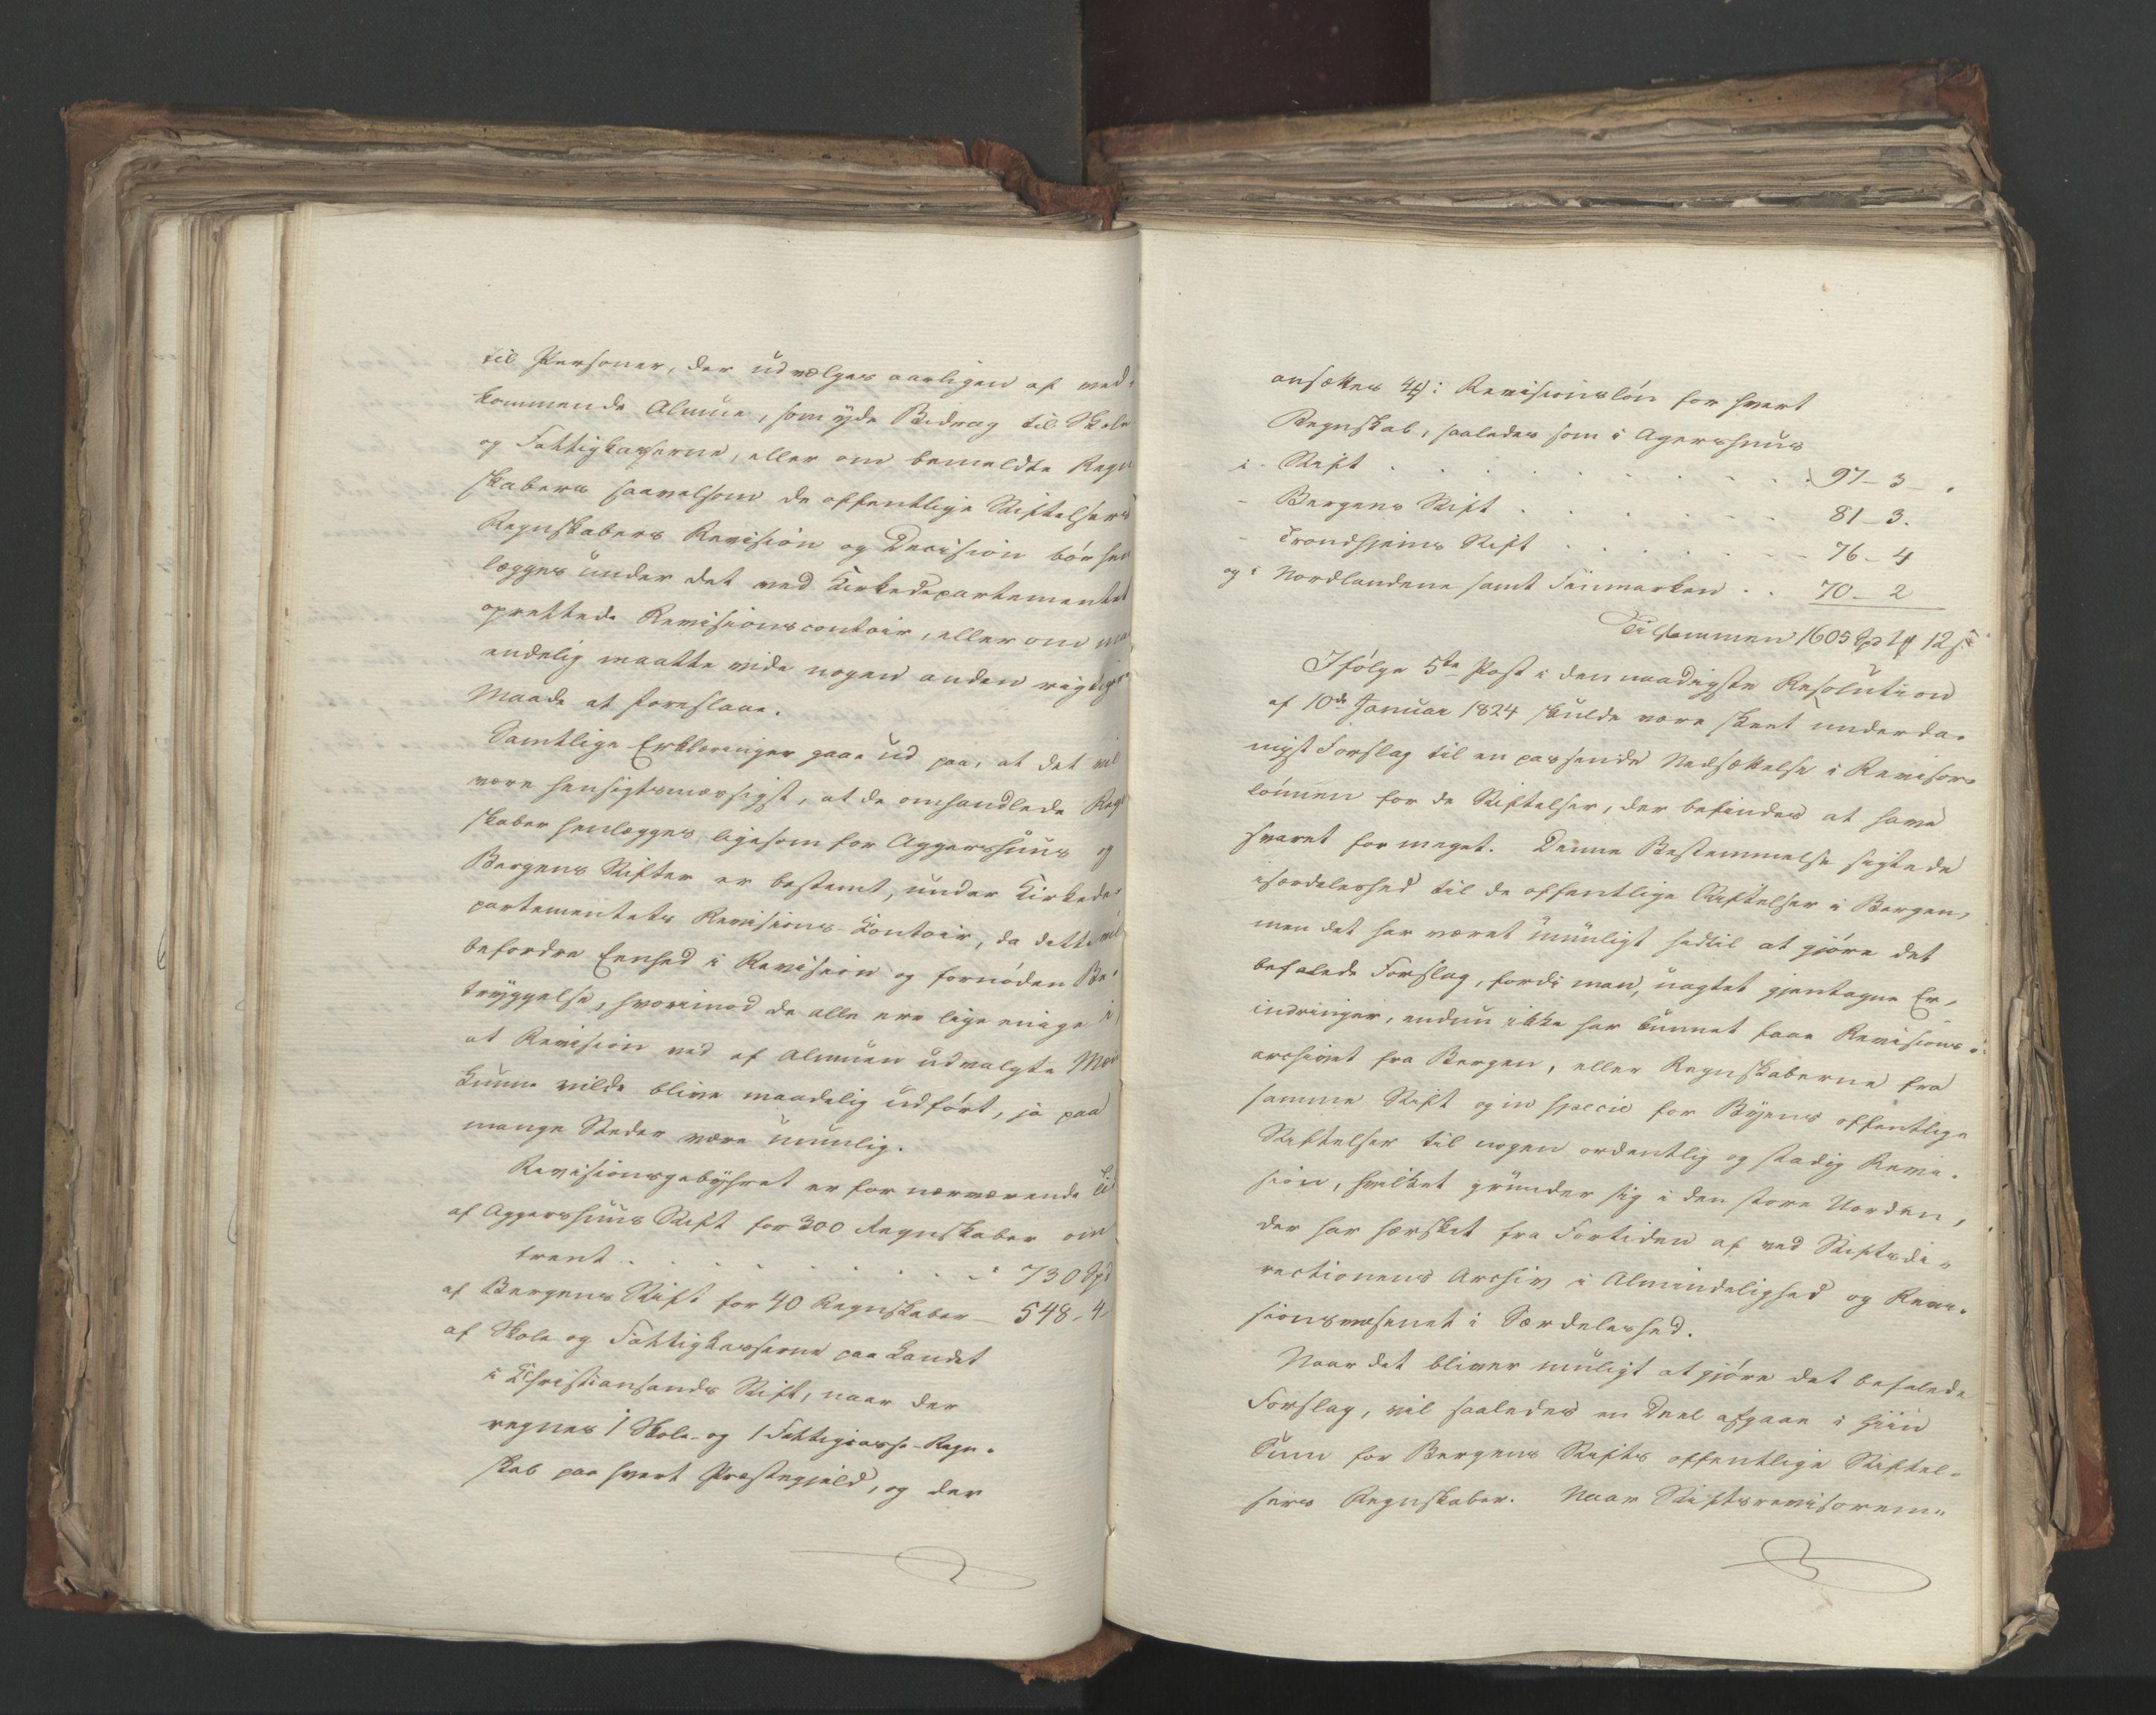 til Personer, der udvælges aarligen af ved-
kommende Almue, som yde Bidrag til Skole
og Fattigkasserne, eller om bemeldte Regn
skabers saavelsom de offentlige Stiftelsers
Regnskabers Revision og Decision bør hen
lægges under det ved Kirkedepartementet
oprettede Revisionscontoir, eller om ma
endelig maatte vide nogen anden rigtigere
Maade at foreslaae.
Samtlige Erklæringer gaae ud paa, at det vil
være hensigtsmæssigst, at de omhandlede Regn
skaber henlægges, ligesom for Aggershuus og
Bergens Stifter er bestemt, under Kirkede-
partementets Revisions-Contoir, da dette vil
befordre Eenhed i Revision og fornøden Be-
tryggelse, hvorimod de alle ere lige enige i,
at Revision ved af Almuen udvalgte Mæn
kunne vilde blive maadelig udført, ja paa
mange Steder være umulig.
Revisionsgebyhret er for nærværende Ti
af Aggershuus Stift for 300 Regnskaber om
trent . . . . . . . . . 730 Spd
af Bergens Stift for 40 Regnskaber — 548 - 4
af Skole og Fattigkasserne paa Landet
i Christiansands Stift, naar der
regnes 1 Skole- og 1 Fattigcasse-Regn-
skab paa hvert Præstegjeld, og der
ansættes 4 i Revisionsløn for hvert
Regnskab, saaledes som i Agershuus
i Stift . . . . . . . . . 97 - 3 -
- Bergens Stift . . . . . . 81 - 3.
- Trondhjems Stift . . . . . . 76 - 4
og i Nordlandene samt Finmarken . . 70 - 2
Tilsammen 1605 Spd 12 s
Ifølge 5te Post i den naadigste Resolution
af 10de Januar 1824 skulde være skeet underda-
nigst Forslag til en passende Nedsættelse i Revisor-
lønnen for de Stiftelser, der befindes at have
svaret for meget. Denne Bestemmelse sigtede
isærdeleshed til de offentlige Stiftelser i Bergen,
men det har været umuligt hedtil at gjøre det
befalede Forslag, fordi man, uagtet gjentagne Er-
indringer, endnu ikke har kunnet faae Revisions-
archivet fra Bergen, eller Regnskaberne fra
samme Stift og in specie for Byens offentlige
Stiftelser til nogen ordentlig og stadig Revi-
sion, hvilket grunder sig i den store Uorden,
der har hersket fra Fortiden af ved Stiftsdi-
rectionens Archiv i Almindelighed og Revi-
sionsvæsenet i Særdeleshed.
Naar det bliver muligt at gjøre det befalede
Forslag, vil saaledes en Deel afgaae i hiin
Sum for Bergens Stifts offentlige Stiftel-
sers Regnskaber. Naar Stiftsrevisorem-